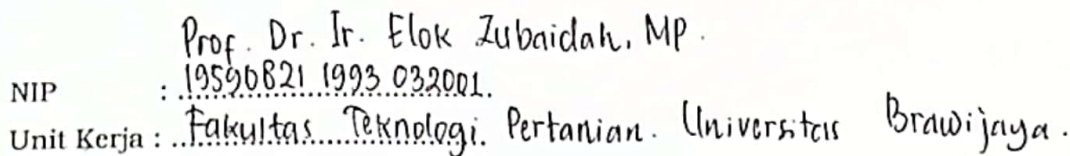 Prof. Dr. Ir. Elok Zubaidah, MP.
NIP : 19590821 1993 032001.
Unit Kerja : Fakultas Teknologi Pertanian. Universitas Brawijaya.